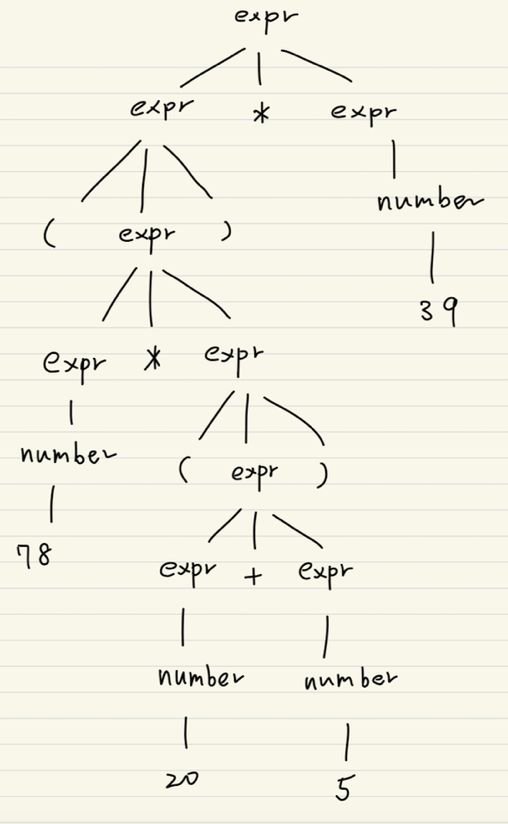 expr
expr * expr
number
( expr )
39
expr * expr
number
( expr )
78
expr + expr
number number
20 5